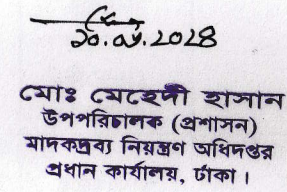 মোঃ মেহেদী হাসান
উপপরিচালক (প্রশাসন)
মাদকদ্রব্য নিয়ন্ত্রণ অধিদপ্তর
প্রধান কার্যালয়, ঢাকা।